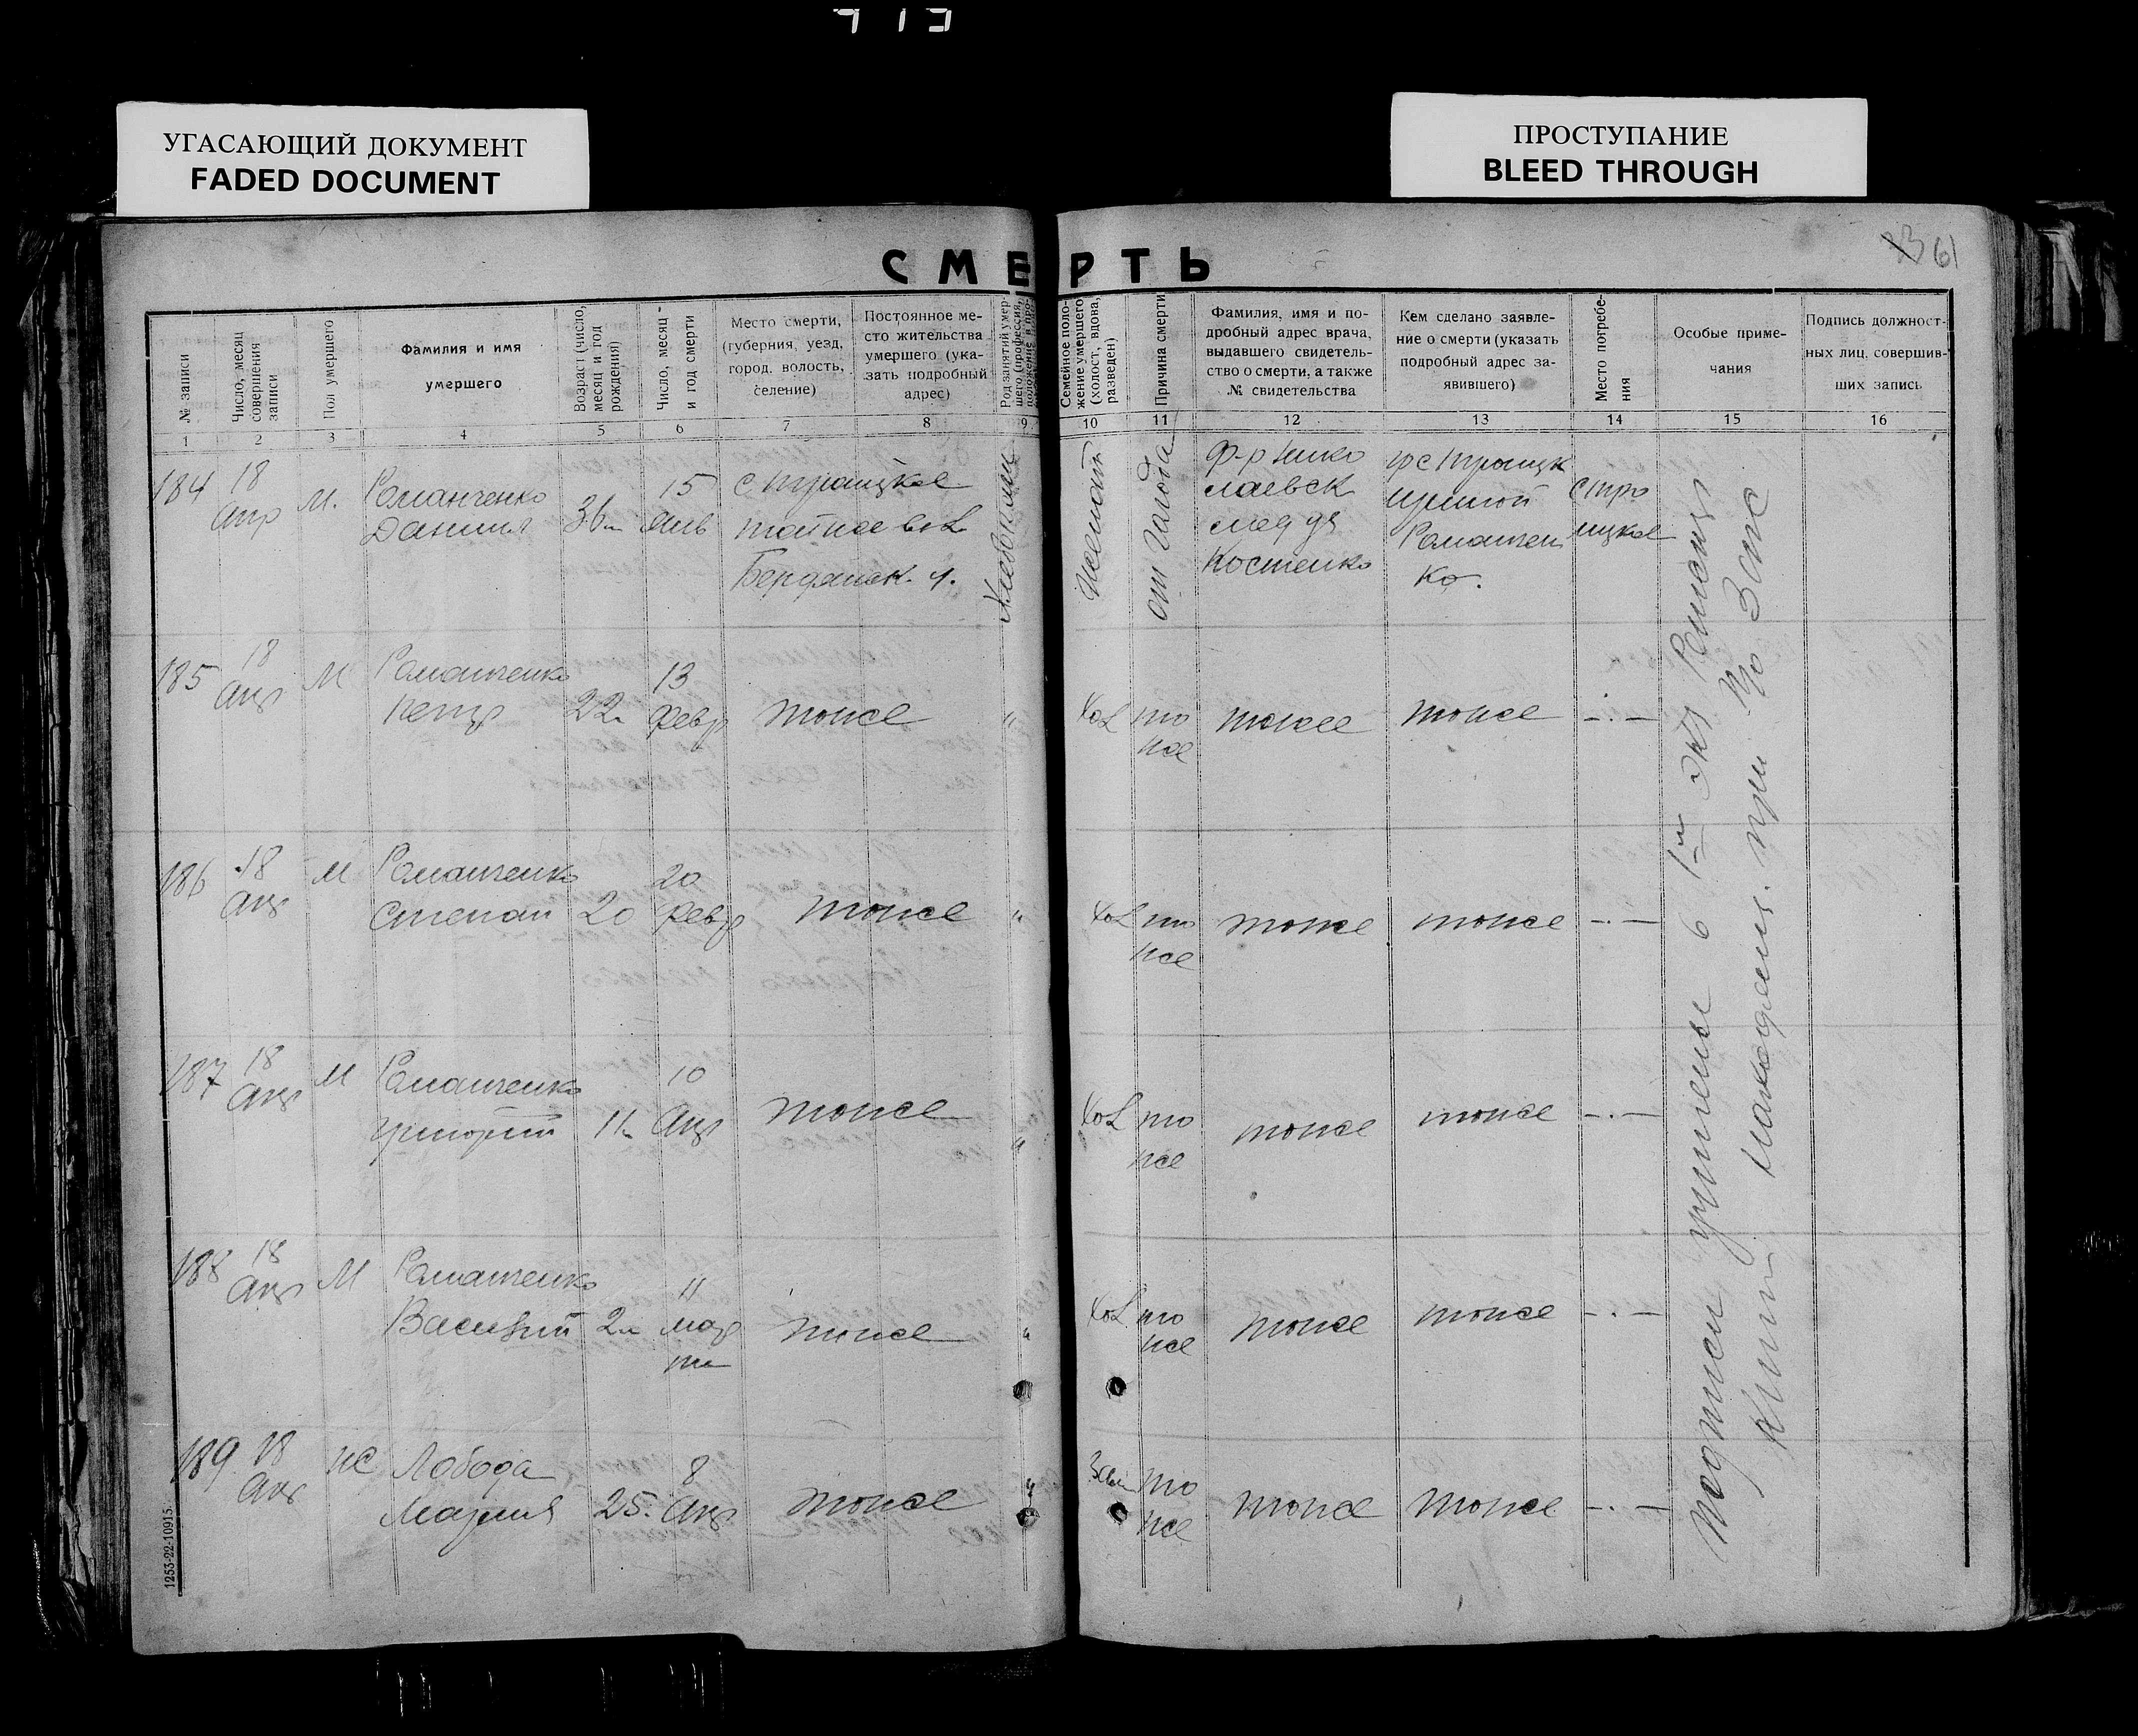 УГАСАЮЩИЙ ДОКУМЕНТ
FADED DOCUMENT
ПРОСТУПАНИЕ
BLEED THROUGH
61
СМЕРТЬ
№ записи
Число, месяц совершения записи
Пол умершего
Фамилия и имя умершего
Возраст (число, месяц и год рождения)
Число, месяц и год смерти
Место смерти, (губерния, уезд, город, волость, селение)
Постоянное место жительства умершего (указать подробный адрес)
Род занятий умершего (профессия, положение в про-
Семейное положение умершего (холост., вдова, разведен)
Причина смерти
Фамилия, имя и подробный адрес врача, выдавшего свидетельство о смерти, а также № свидетельства
Кем сделано заявление о смерти (указать подробный адрес заявившего)
Место погребения
Особые примечания
Подпись должностных лиц, совершивших запись
1 2 3 4 5 6 7 8 9 10 11 12 13 14 15 16
184 18 Апр М. Романченко Даниил 36л 15 Янв с Троицкое
Бердянск. у.
от голода
Костенко
Романчен
ко.
с Тро
ицкое
185 18 Апр М Романченко Петр 22л 13 февр тоже " хол то же тоже тоже — . —
186 18 Апр М Романченко Степан 20 20 февр тоже " хол то же тоже тоже — . —
187 18 Апр М Романченко Григорий 11л 10 Апр тоже " хол то же тоже тоже — . —
188 18 Апр М Романченко Василий 2л 11 мар та тоже " хол то же тоже тоже — . —
189 18 Апр Ж Лобода Мария 25. 8 Апр тоже " Зам то же тоже тоже — . —
Подписи учинены в 1м экз
находящ. при
1253-22-10915.